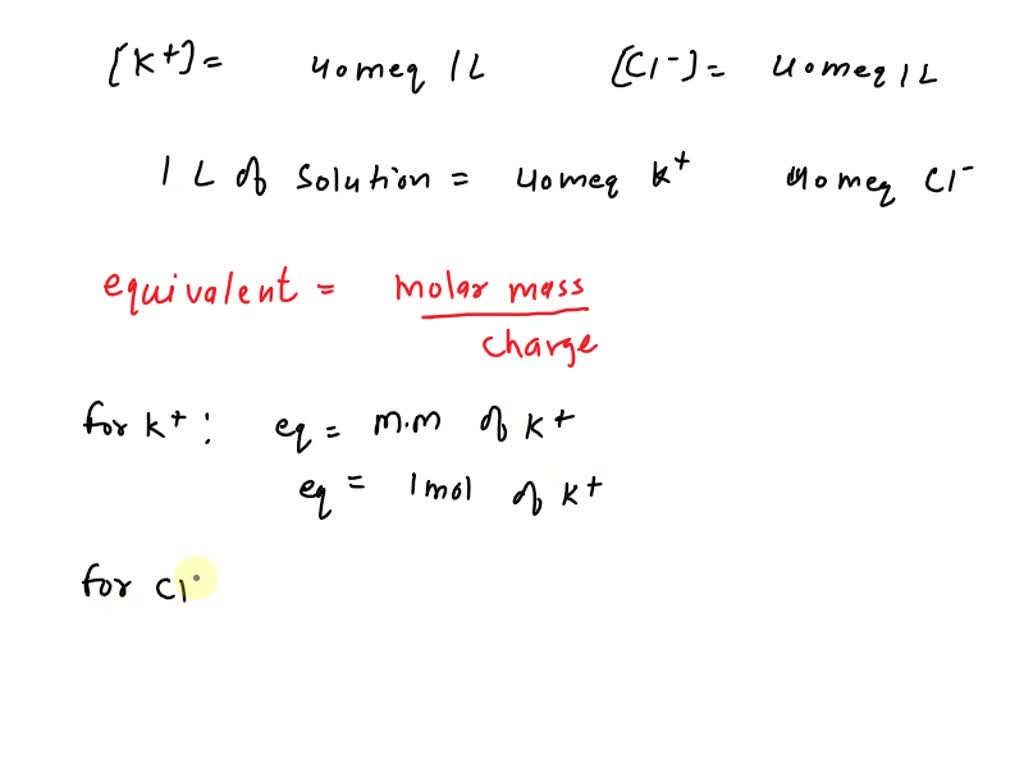 [K+] = 40meq/L [Cl-] = 40meq/L
1 L of solution = 40meq K+ 40meq Cl-
equivalent = molar mass
charge
for K+ : eq = m.m of K+
eq = 1mol of K+
for Cl